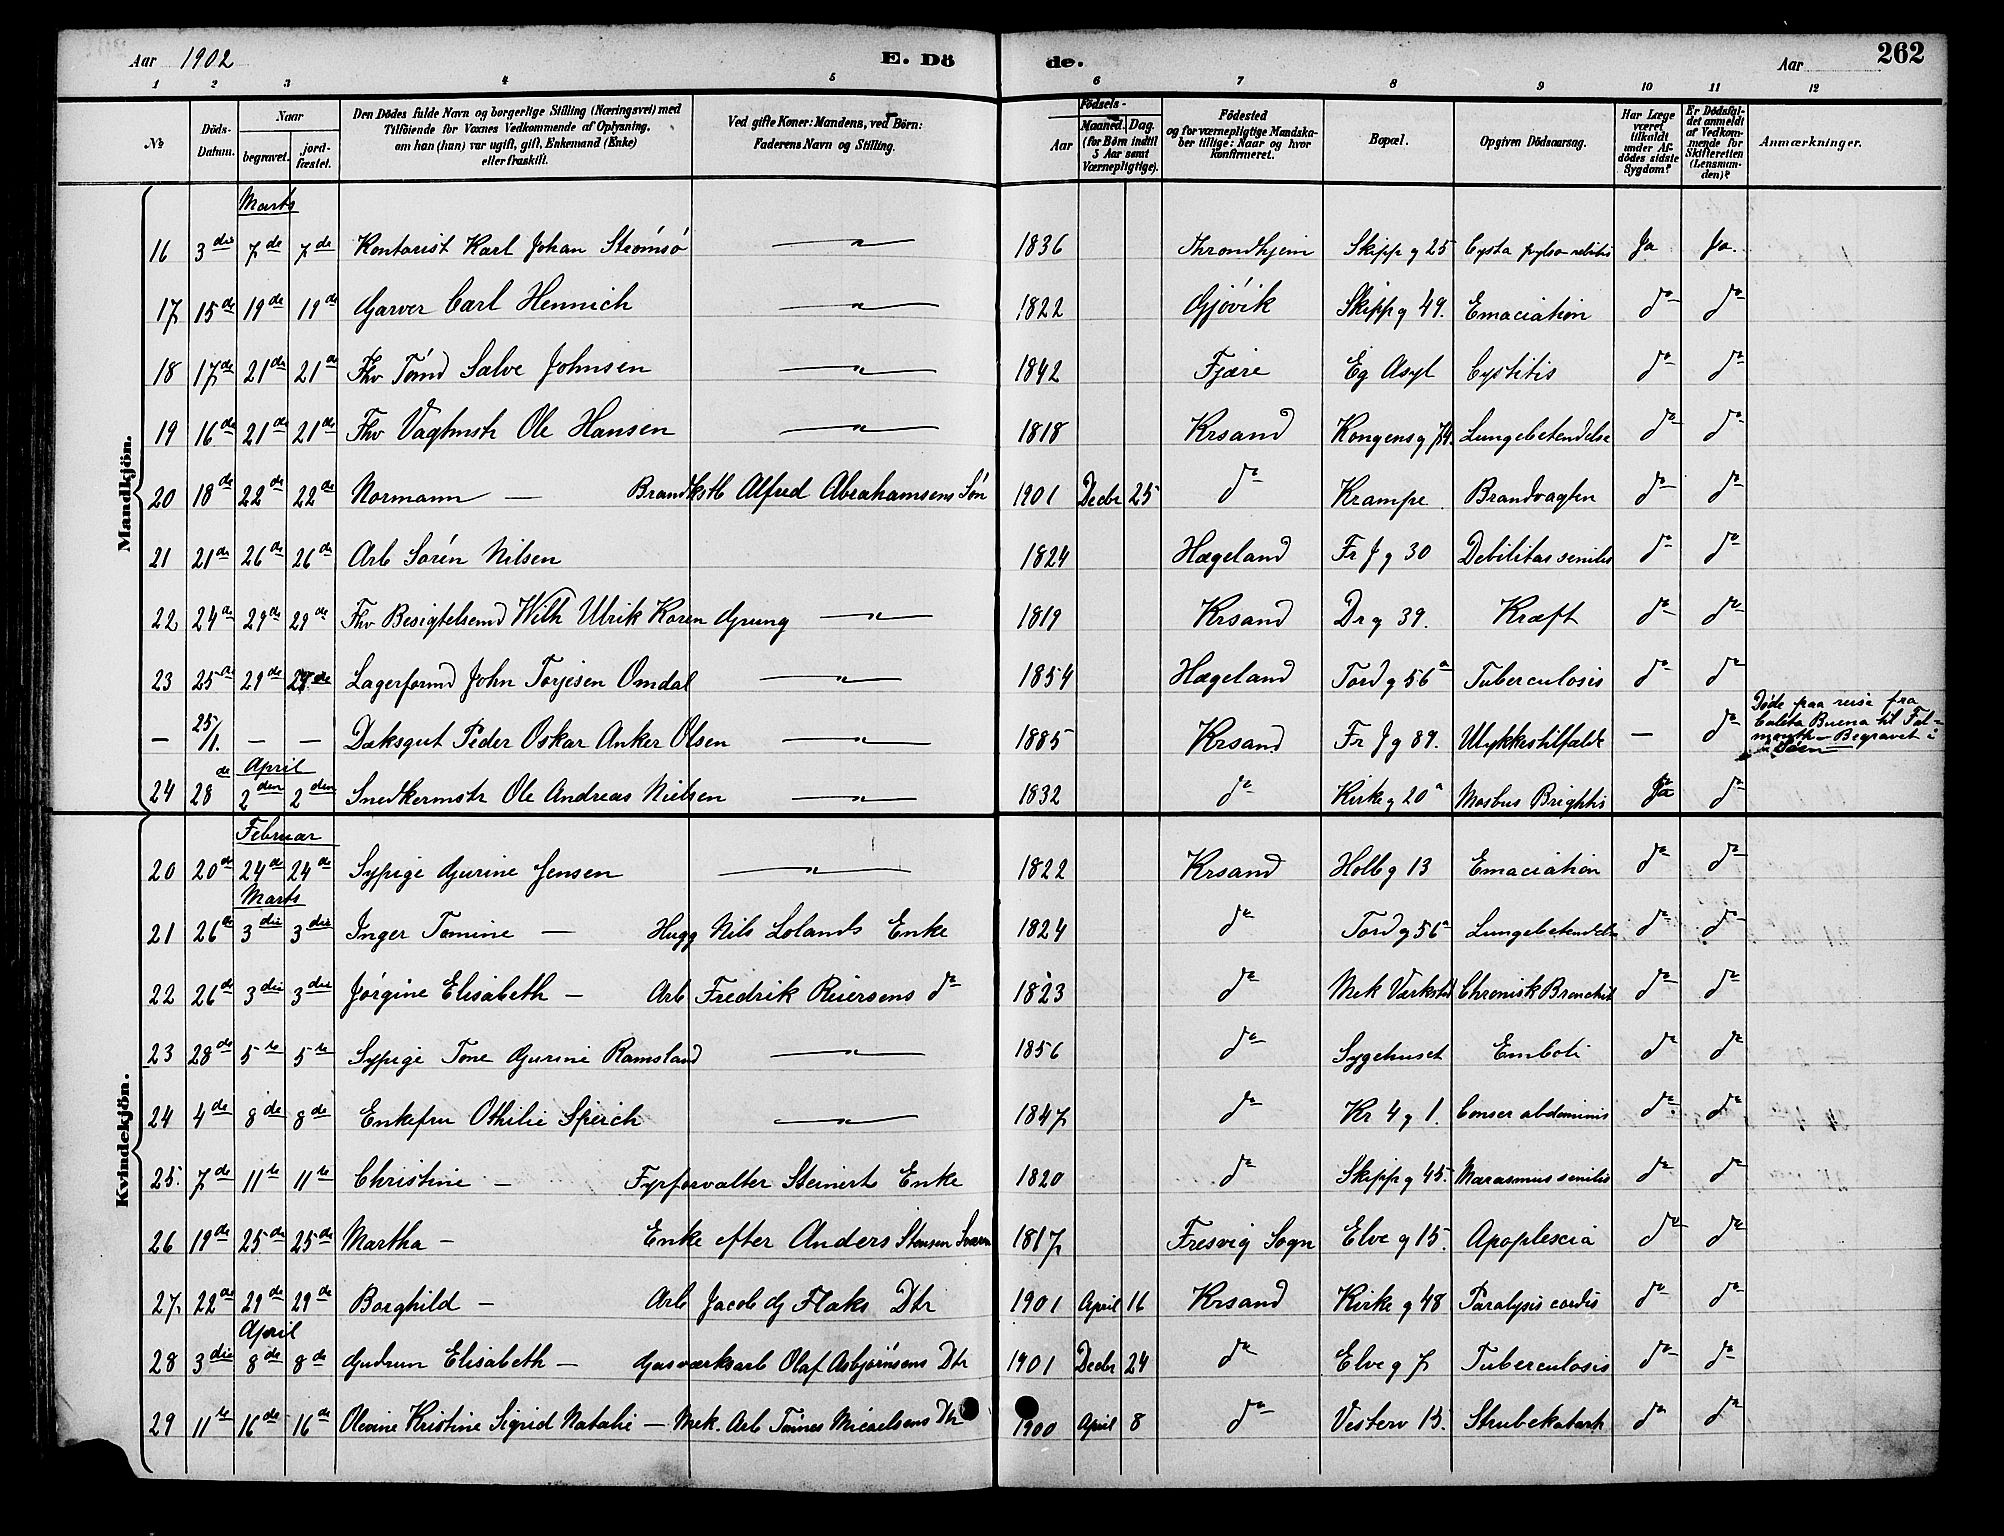 Aar 1902 E. Dö de. Aar 262
1 2 3 4 5 6 7 8 9 10 11 12
No Döds-Datum. Naar begravet. jord-fæstet. Den Dödes fulde Navn og borgerlige Stilling (Næringsvei) med Tilföiende for Voxnes Vedkommende af Oplysning, om han (hun) var ugift, gift, Enkemand (Enke) eller fraskilt. Ved gifte Koner: Mandens, ved Börn: Faderens Navn og Stilling. Födsels- Aar Maaned. Dag. (for Börn indtil 5 Aar samt Værnepligtige). Födested og for værnepligtige Mandskaber tillige: Naar og hvor konfirmeret. Bopæl. Opgiven Dödsaarsag. Har Læge været tilkaldt under Afdödes sidste Sygdom? Er Dödsfaldet anmeldt af Vedkommende for Skifteretten (Lensmanden)? Anmærkninger.
Mandkjön.
Marts
16 3die 7de 7de Kontorist Karl Johan Strömsö — " — 1836 Throndhjem Skipp g 25 Ja Ja.
17 15de 19de 19de Garver Carl Hennich — " — 1822 Gjövik Skipp g 49. Emaciation do do
18 17de 21de 21de Fhv Tömd Salve Johnsen — " — 1842 Fjære Eg Asyl Cystitis do do
19 16de 21de 21de Fhv Vagtmstr Ole Hansen — " — 1818 Krsand Kongens g 74. Lungebetendelse do do
20 18de 22de 22de Normann — Brandkstb Alfred Abrahamsens Sön 1901 Decbr 25 do Krampe Brandvagten do do
21 21de 26de 26de Arb Sören Nilsen 1824 Hægeland Fr J g 30 Debilitas senilis do do
22 24de 29de 29de Fhv Besigtelsemd Wilh Ulrik Koren Grung — " — 1819 Krsand Dr g 39. Kræft do do
23 25de 29de 29de Lagerformd John Torjesen Omdal — " — 1854 Hægeland Tord g 56a Tuberculosis do do
— 25/1. — — Dæksgut Peder Oskar Anker Olsen — " — 1885 Krsand Fr J g 89. Ulykkestilfælde — do Döde paa reise fra Caleta Buena til Falmouth – Begravet i Söen
April
24 28de 2den 2den Snedkermstr Ole Andreas Nielsen — " — 1832 do Kirke g 20a Morbus Brightis Ja do
Kvindekjön.
Februar
20 20de 24de 24de Sypige Gurine Jensen — " — 1822 Krsand Holb g 13 Emaciation do do
Marts
21 26de 3die 3die Inger Tomine — Hugg Nils Lolands Enke 1824 do Tord g 56a Lungebetendelse do do
22 26de 3die 3die Jörgine Elisabeth — Arb Fredrik Reiersens do 1823 do Mek Værksted Chronisk Bronchit do do
23 28de 5te 5te Sypige Tone Gurine Ramsland — " — 1856 do Sygehuset Emboli do do
24 4de 8de 8de Enkefru Othilie Speich — " — 1847 do Kr 4 g 1. abdominis do do
25. 7de 11te 11te Christine — Fyrforvalter Steinerts Enke 1820 do Skipp g 45. Marasmus senilis do do
26 19de 25de 25de Martha — Enke efter Anders Stensen 1817 Fresvig Sogn Elve g 15. Apoplescia do do
27. 22de 29de 29de Borghild — Arb Jacob G Flaks Dtr 1901 April 16 Krsand Kirke g 48 Paralysis cordis do do
April
28 3die 8de 8de Gudrun Elisabeth — Gasværksarb Olaf Asbjörnsens Dtr 1901 Decbr 24 do Elve g 7 Tuberculosis do do
29 11te 16de 16de Olevine Kristine Sigrid Natalie — Mek. Arb Tönnes Micaelsens Dtr 1900 April 8 do Vesterv 15. Strubekatarrh do do